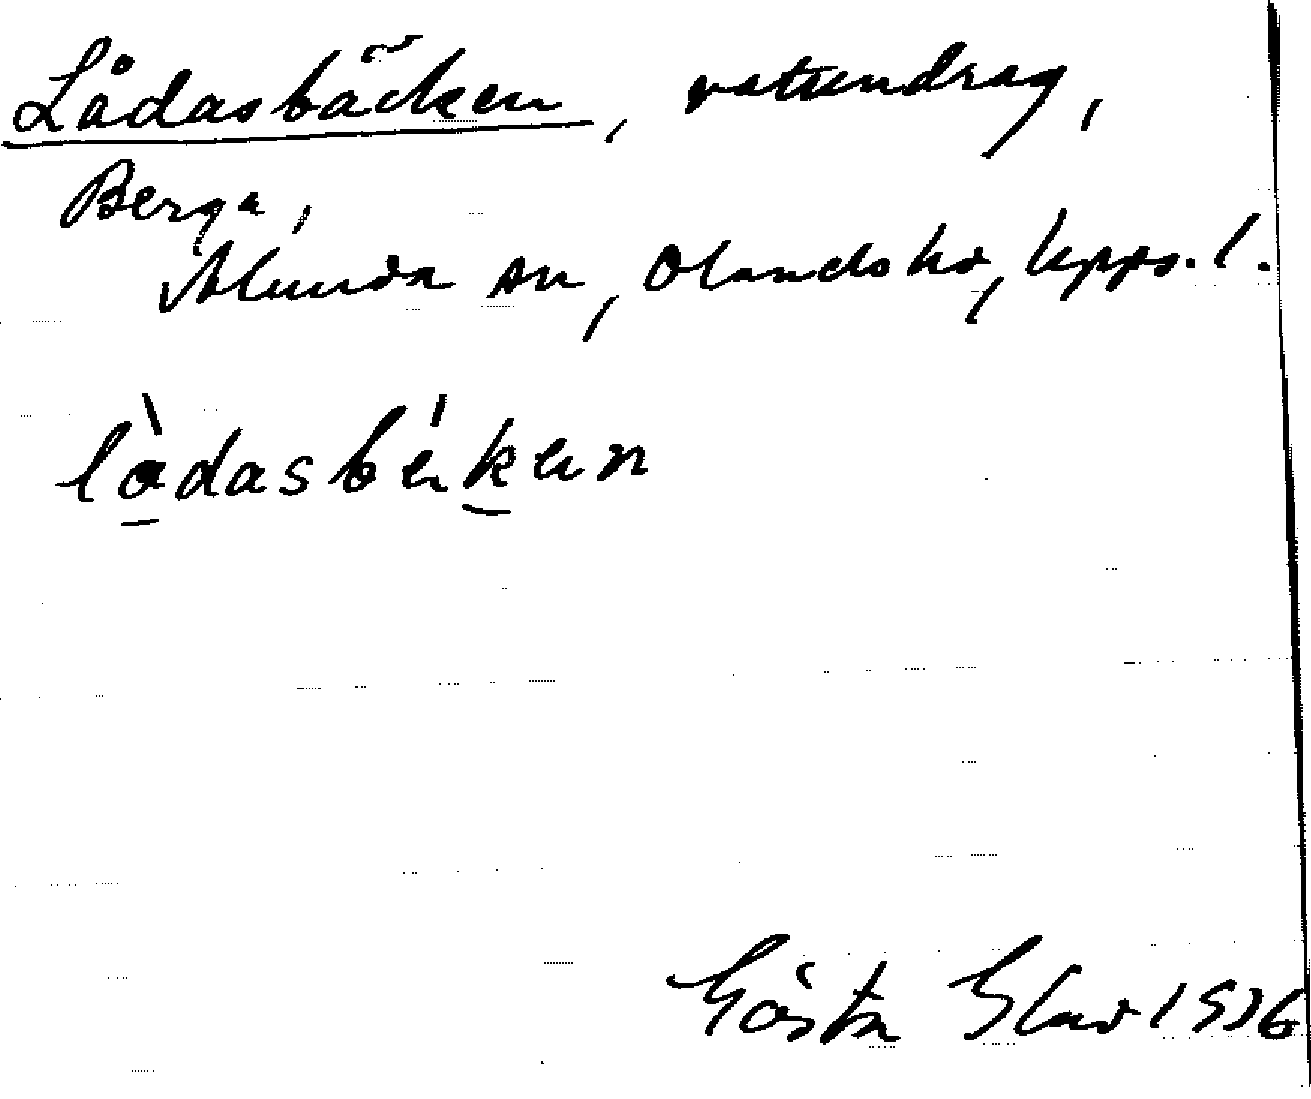 Lådasbäcken, vattendrag,
Berga,
Alunda sn, Olands hd, Upps. l.
làdasbékɐn
Gösta 1936